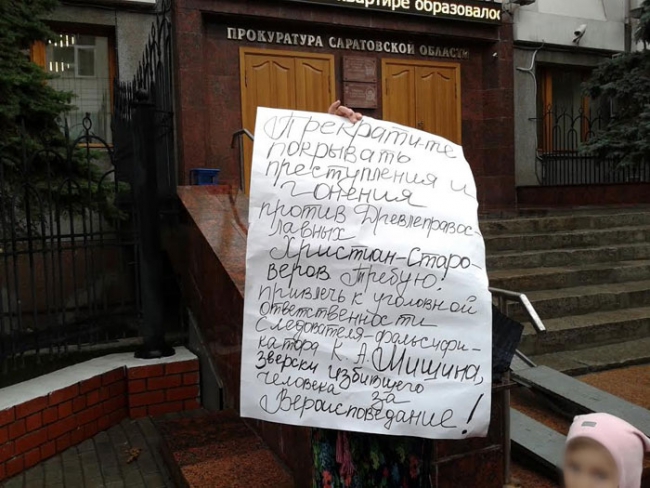 квартире образовалос
ПРОКУРАТУРА САРАТОВСКОЙ ОБЛАСТИ
Прекратите
покрывать
преступления и
гонения
против Древлеправос-
лавных
Христиан-Старо-
веров Требую!
привлечь к уголовной
ответственности
Следователя-фальсифи-
катора К. А. Мишина,
зверски избившего
человека за
Вероисповедание!